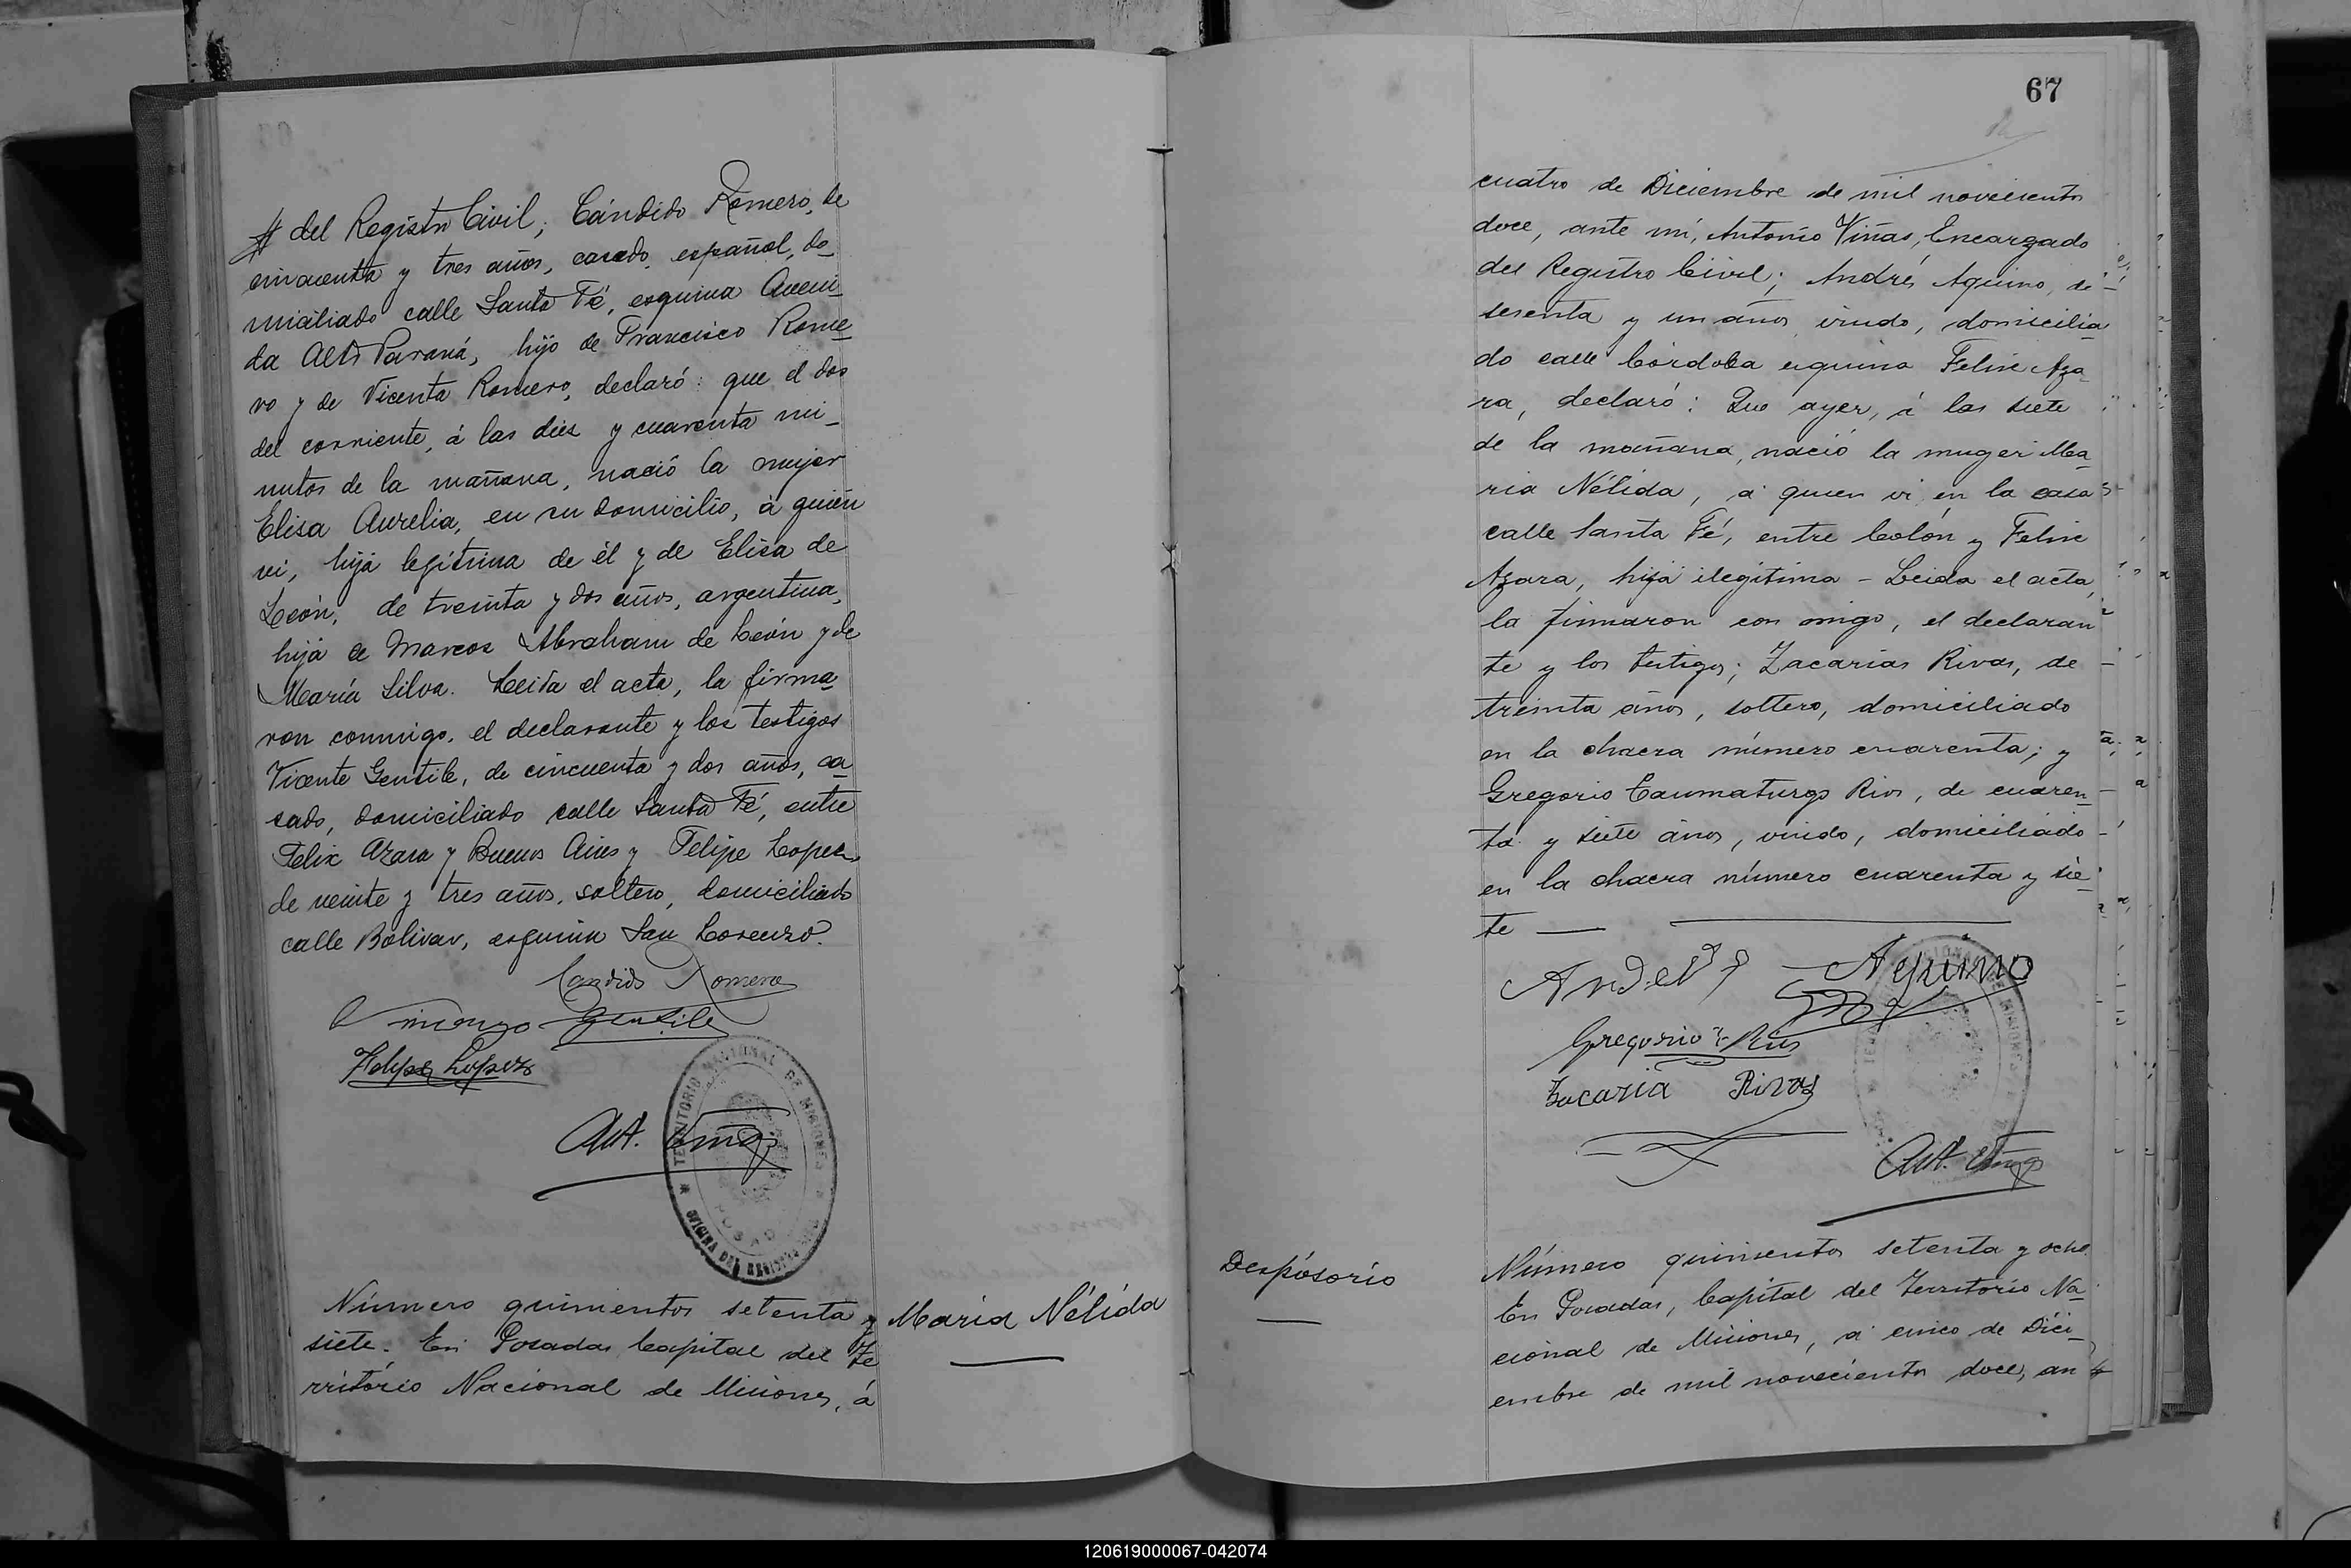 del Registro Civil; Cándido Romero, de
cincuenta y tres años, casado, español, do-
miciliado calle Santa Fé, esquina Aveni-
da Alto Paraná, hijo de Francisco Rome-
ro y de Vicenta Romero, declaró: que el dos
del corriente, á las diez y cuarenta mi-
nutos de la mañana, nació la mujer
Elisa Aurelia, en su domicilio, á quién
vi, hija legítima de él y de Elisa de
León, de treinta y dos años, argentina,
hija de Marcos Abraham de León y de
María Silva. Leida el acta, la firma-
ron conmigo, el declarante y los testigos
Vicente Gentile, de cincuenta y dos años, ca-
sado, domiciliado calle Santa Fé, entre
Felix Azara y Buenos Aires y Felipe Lopez,
de veinte y tres años, soltero, domiciliado
calle Bolivar, esquina San Lorenzo.
Candido Romero
Gentile
Felipe Lopez
Ant. Viñas
TERRITORIO NACIONAL DE MISIONES
POSADAS
OFICINA DEL REGISTRO CIVIL
Número quinientos setenta y
siete. En Posadas, Capital del Te
rritório Nacional de Misiones, á
Maria Nélida
67
cuatro de Diciembre de mil novecientos
doce, ante mí, Antonio Viñas, Encargado
del Registro Civil; Andrés Aquino, de
sesenta y un años, viudo, domicilia
do calle Córdoba esquina Felix Aza-
ra, declaró: Que ayer, á las siete
de la mañana, nació la muger Ma-
ria Nélida, á quien vi, en la casa
calle Santa Fé, entre Colón y Felix
Azara, hija ilegítima - Leida el acta,
la firmaron con migo, el declaran
te y los testigos; Zacarías Rivas, de
treinta años, soltero, domiciliado
en la chacra número cuarenta; y
Gregorio Taumaturgo Rios, de cuaren-
ta y siete años, viudo, domiciliado
en la chacra número cuarenta y sie-
te
Andrés Aquino
Gregorio T. Rios
Zacaria Rivas
Ant. Viñas
Despósorio
Número quinientos setenta y ocho.
En Posadas, Capital del Territorio Na-
cional de Misiones, á cinco de Dici-
embre de mil novecientos doce, an
120619000067-042074